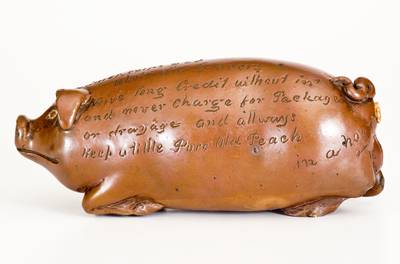 give long Credit without in
and never Charge for Package
or drayage and allways
Keep a little Pure Old Peach
in a ho